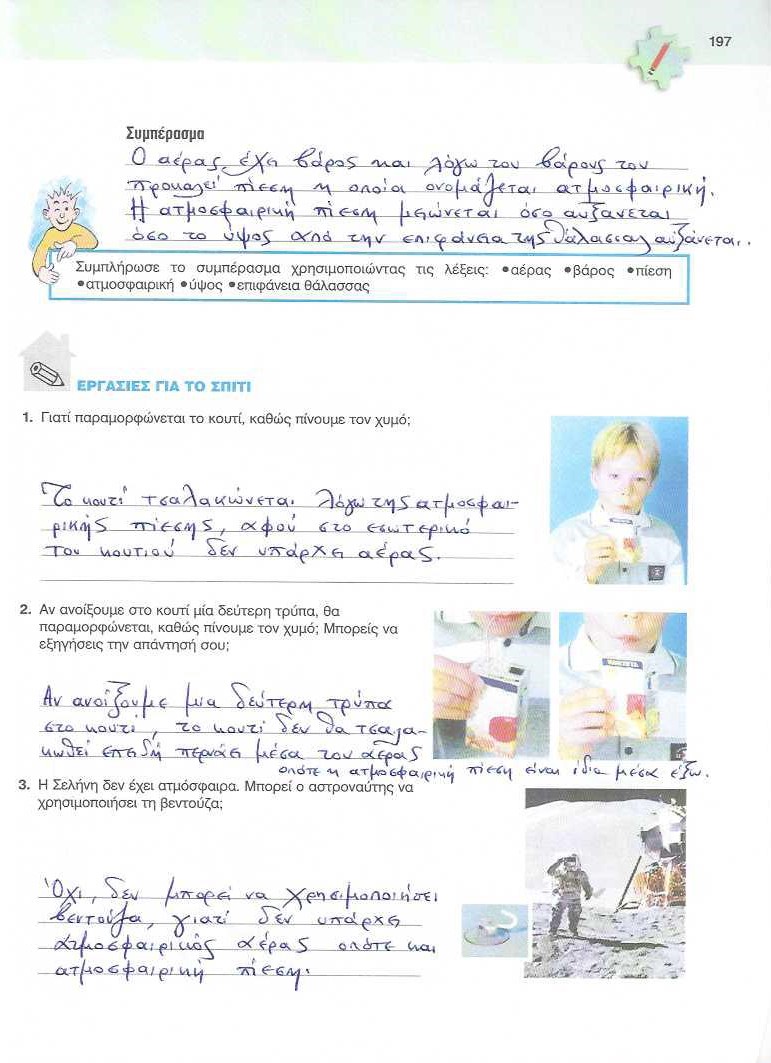 197
Συμπέρασμα
Ο αέρας έχει βάρος και λόγω του βάρους του
προκαλεί πίεση η οποία ονομάζεται ατμοσφαιρική.
Η ατμοσφαιρική πίεση μειώνεται όσο αυξάνεται
όσο το ύψος από την επιφάνεια της θάλασσας αυξάνεται..
Συμπλήρωσε το συμπέρασμα χρησιμοποιώντας τις λέξεις: •αέρας •βάρος •πίεση
•ατμοσφαιρική •ύψος •επιφάνεια θάλασσας
ΕΡΓΑΣΙΕΣ ΓΙΑ ΤΟ ΣΠΙΤΙ
1. Γιατί παραμορφώνεται το κουτί, καθώς πίνουμε τον χυμό;
Το κουτί τσαλακώνεται λόγω της ατμοσφαι-
ρικής πίεσης, αφού στο εσωτερικό
του κουτιού δεν υπάρχει αέρας.
2. Αν ανοίξουμε στο κουτί μία δεύτερη τρύπα, θα
παραμορφώνεται, καθώς πίνουμε τον χυμό; Μπορείς να
εξηγήσεις την απάντησή σου;
Αν ανοίξουμε μια δεύτερη τρύπα
στο κουτί, το κουτί δεν θα τσαλα-
κωθεί επειδή περνάει μέσα του αέρας
οπότε η ατμοσφαιρική πίεση είναι ίδια μέσα έξω.
3. Η Σελήνη δεν έχει ατμόσφαιρα. Μπορεί ο αστροναύτης να
χρησιμοποιήσει τη βεντούζα;
Όχι, δεν μπορεί να χρησιμοποιήσει
βεντούζα, γιατί δεν υπάρχει
ατμοσφαιρικός αέρας οπότε και
ατμοσφαιρική πίεση.